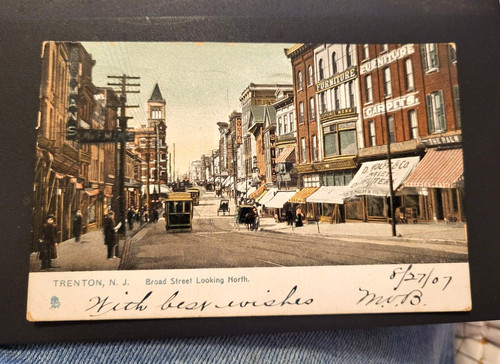 FURNITURE
FURNITURE
CARPETS.
TRENTON, N. J. Broad Street Looking North. 8/27/07
With best wishes M.B.